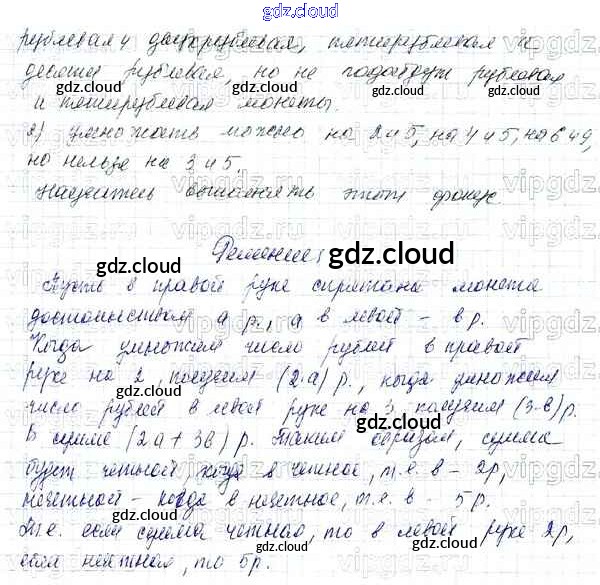 gdz.cloud
рублевая и двухрублевая, пятирублевая и
десяти рублевая, но не подойдут рублевая
и пятирублевая монеты.
2) умножать можно на 2 и 5, на 4 и 5, на 6 и 9,
но нельзя на 3 и 5.
Научитесь выполнять этот фокус
Решение:
Пусть в правой руке спрятана монета
достоинством а р., а в левой - в р.
Когда умножим число рублей в правой
руке на 2, получим (2·а) р., когда умножим
число рублей в левой руке на 3, получим (3·в) р.
В сумме (2а + 3в) р. Таким образом, сумма
будет четной, когда в четное, т.е. в - 2р,
нечетной - когда в нечетное, т.е. в - 5р.
Т.е. если сумма четная, то в левой руке 2р,
если нечетная, то 5р.